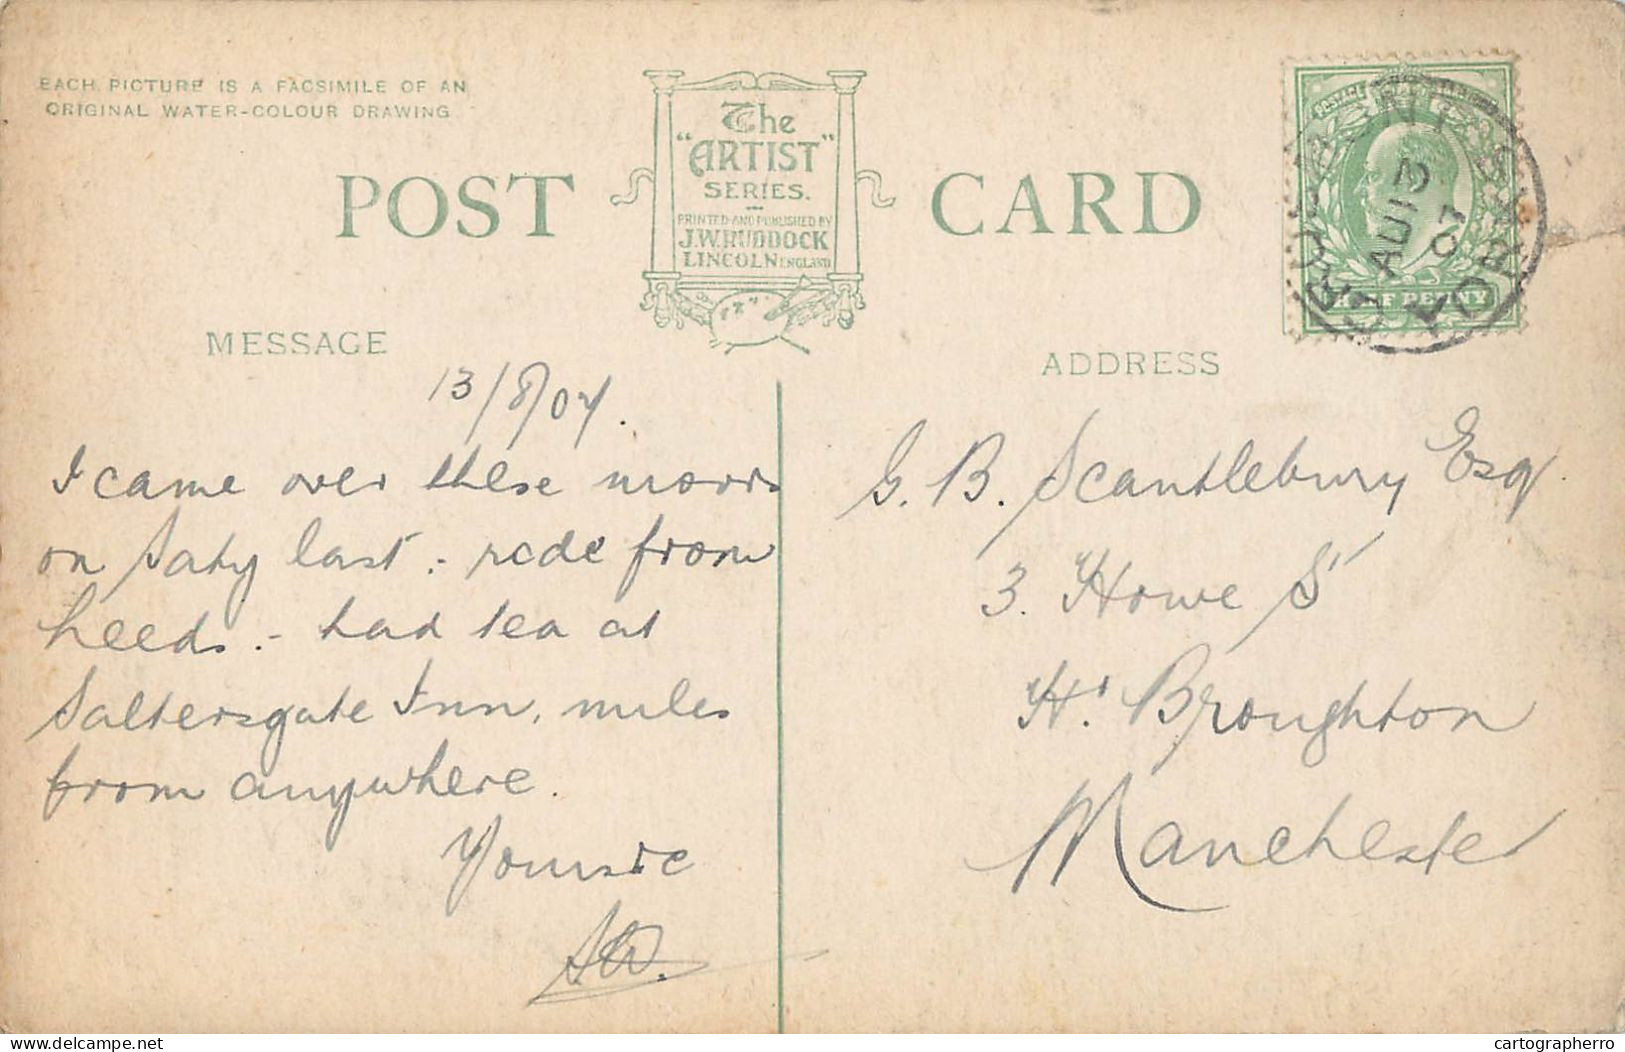 EACH PICTURE IS A FACSIMILE OF AN
ORIGINAL WATER-COLOUR DRAWING
POST CARD
The
"ARTIST"
SERIES.
PRINTED AND PUBLISHED BY
J.W.RUDDOCK
LINCOLN ENGLAND
POSTAGE
HALF PENNY
AU 13
07
YORKS
MESSAGE
13/8/07.
I came over these moors
on Saty last - rode from
Leeds. - had tea at
Saltersgate Inn, miles
from anywhere.
Yours etc
ADDRESS
G. B. Scantlebury Esq
3. Howe St
Hr. Broughton
Manchester
Delcampe.net
cartographerro